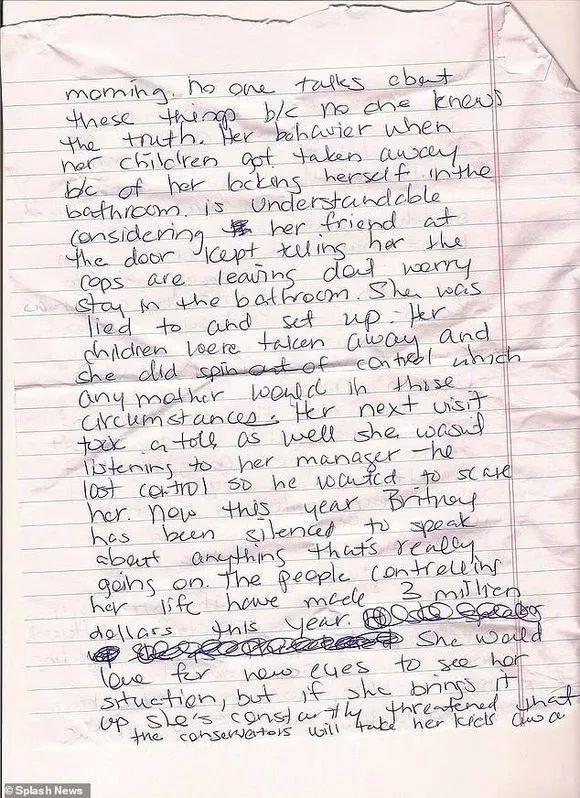 morning. no one talks about
these things b/c no one knows
the truth. Her behavior when
her children got taken away
b/c of her locking herself in the
bathroom. is understandable
considering her friend at
the door kept telling her the
cops are leaving dont worry
stay in the bathroom. She was
lied to and set up. Her
children were taken away and
she did spin out of control which
any mother would in those
circumstances. Her next visit
took a toll as well she wasnt
listening to her manager - he
lost control so he wanted to scare
her. Now this year Britney
has been silenced to speak
about anything that's really
going on. The people controlling
her life have made 3 million
dollars this year.
She would
love for new eyes to see her
situation, but if she brings it
up she's constantly threatened that
the conservators will take her kids awa
© Splash News